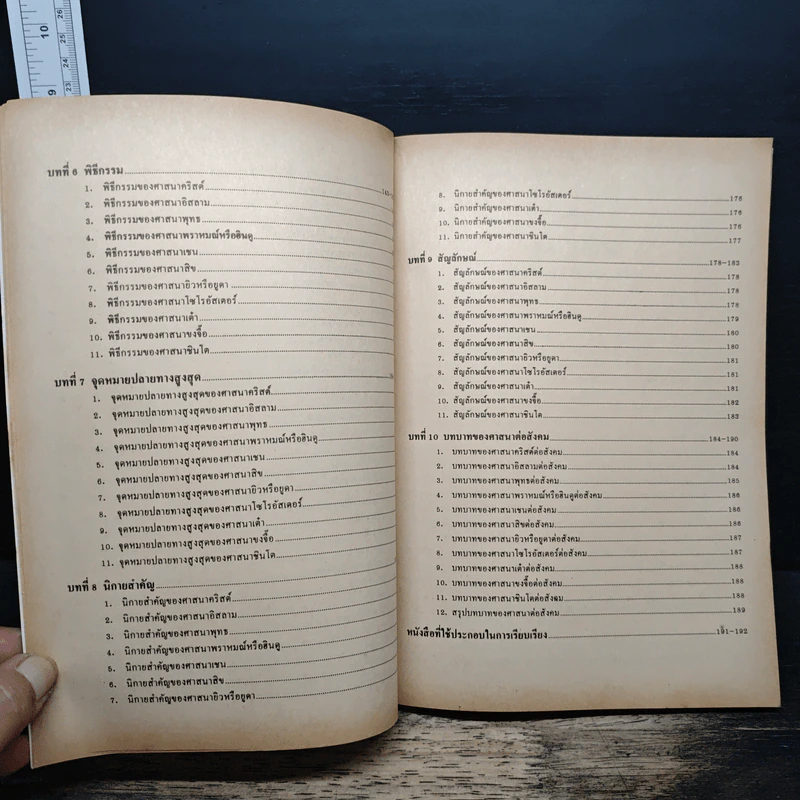 10
26
25
9
23
บทที่ 6 พิธีกรรม
1. พิธีกรรมของศาสนาคริสต์
2. พิธีกรรมของศาสนาอิสลาม
3. พิธีกรรมของศาสนาพุทธ
4. พิธีกรรมของศาสนาพราหมณ์หรือฮินดู
5. พิธีกรรมของศาสนาเชน
6. พิธีกรรมของศาสนาสิข
7. พิธีกรรมของศาสนายิวหรือยูดา
8. พิธีกรรมของศาสนาโซโรอัสเตอร์
9. พิธีกรรมของศาสนาเต๋า
10. พิธีกรรมของศาสนาขงจื้อ
11. พิธีกรรมของศาสนาชินโต
บทที่ 7 จุดหมายปลายทางสูงสุด
1. จุดหมายปลายทางสูงสุดของศาสนาคริสต์
2. จุดหมายปลายทางสูงสุดของศาสนาอิสลาม
3. จุดหมายปลายทางสูงสุดของศาสนาพุทธ
4. จุดหมายปลายทางสูงสุดของศาสนาพราหมณ์หรือฮินดู
5. จุดหมายปลายทางสูงสุดของศาสนาเชน
6. จุดหมายปลายทางสูงสุดของศาสนาสิข
7. จุดหมายปลายทางสูงสุดของศาสนายิวหรือยูดา
8. จุดหมายปลายทางสูงสุดของศาสนาโซโรอัสเตอร์
9. จุดหมายปลายทางสูงสุดของศาสนาเต๋า
10. จุดหมายปลายทางสูงสุดของศาสนาขงจื้อ
11. จุดหมายปลายทางสูงสุดของศาสนาชินโต
บทที่ 8 นิกายสำคัญ
1. นิกายสำคัญของศาสนาคริสต์
2. นิกายสำคัญของศาสนาอิสลาม
3. นิกายสำคัญของศาสนาพุทธ
4. นิกายสำคัญของศาสนาพราหมณ์หรือฮินดู
5. นิกายสำคัญของศาสนาเชน
6. นิกายสำคัญของศาสนาสิข
7. นิกายสำคัญของศาสนายิวหรือยูดา
8. นิกายสำคัญของศาสนาโซโรอัสเตอร์ 176
9. นิกายสำคัญของศาสนาเต๋า 176
10. นิกายสำคัญของศาสนาขงจื้อ 176
11. นิกายสำคัญของศาสนาชินโต 177
บทที่ 9 สัญลักษณ์ 178-183
1. สัญลักษณ์ของศาสนาคริสต์ 178
2. สัญลักษณ์ของศาสนาอิสลาม 178
3. สัญลักษณ์ของศาสนาพุทธ 178
4. สัญลักษณ์ของศาสนาพราหมณ์หรือฮินดู 179
5. สัญลักษณ์ของศาสนาเชน 180
6. สัญลักษณ์ของศาสนาสิข 180
7. สัญลักษณ์ของศาสนายิวหรือยูดา 181
8. สัญลักษณ์ของศาสนาโซโรอัสเตอร์ 181
9. สัญลักษณ์ของศาสนาเต๋า 181
10. สัญลักษณ์ของศาสนาขงจื้อ 182
11. สัญลักษณ์ของศาสนาชินโต 183
บทที่ 10 บทบาทของศาสนาต่อสังคม 184-190
1. บทบาทของศาสนาคริสต์ต่อสังคม 184
2. บทบาทของศาสนาอิสลามต่อสังคม 184
3. บทบาทของศาสนาพุทธต่อสังคม 185
4. บทบาทของศาสนาพราหมณ์หรือฮินดูต่อสังคม 186
5. บทบาทของศาสนาเชนต่อสังคม 186
6. บทบาทของศาสนาสิขต่อสังคม 186
7. บทบาทของศาสนายิวหรือยูดาต่อสังคม 187
8. บทบาทของศาสนาโซโรอัสเตอร์ต่อสังคม 187
9. บทบาทของศาสนาเต๋าต่อสังคม 188
10. บทบาทของศาสนาขงจื้อต่อสังคม 188
11. บทบาทของศาสนาชินโตต่อสังคม 188
12. สรุปบทบาทของศาสนาต่อสังคม 189
หนังสือที่ใช้ประกอบในการเรียบเรียง 191-192